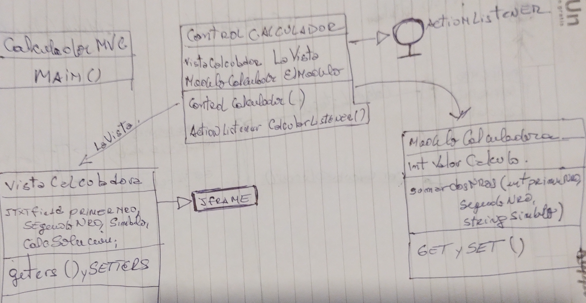 Calculador MVC
MAIN()
Control CALCULADOR
VistaCalculadora LaVista
Modelo Calculador ElModelo
Control Calculador(.)
ActionListener CalcularListener()
ActionListENER
LaVista
Vista Calculadora
JTextField PRIMERNRO,
SEgundo NRO, Simbolo,
CalcSolucion;
geters(), y SETTERS
JFRAME
Modelo Calculadora
int Valor Calculo.
sumardosNROS(int primerNRO,
segundo NRO,
string Simbolo)
GET y SET()